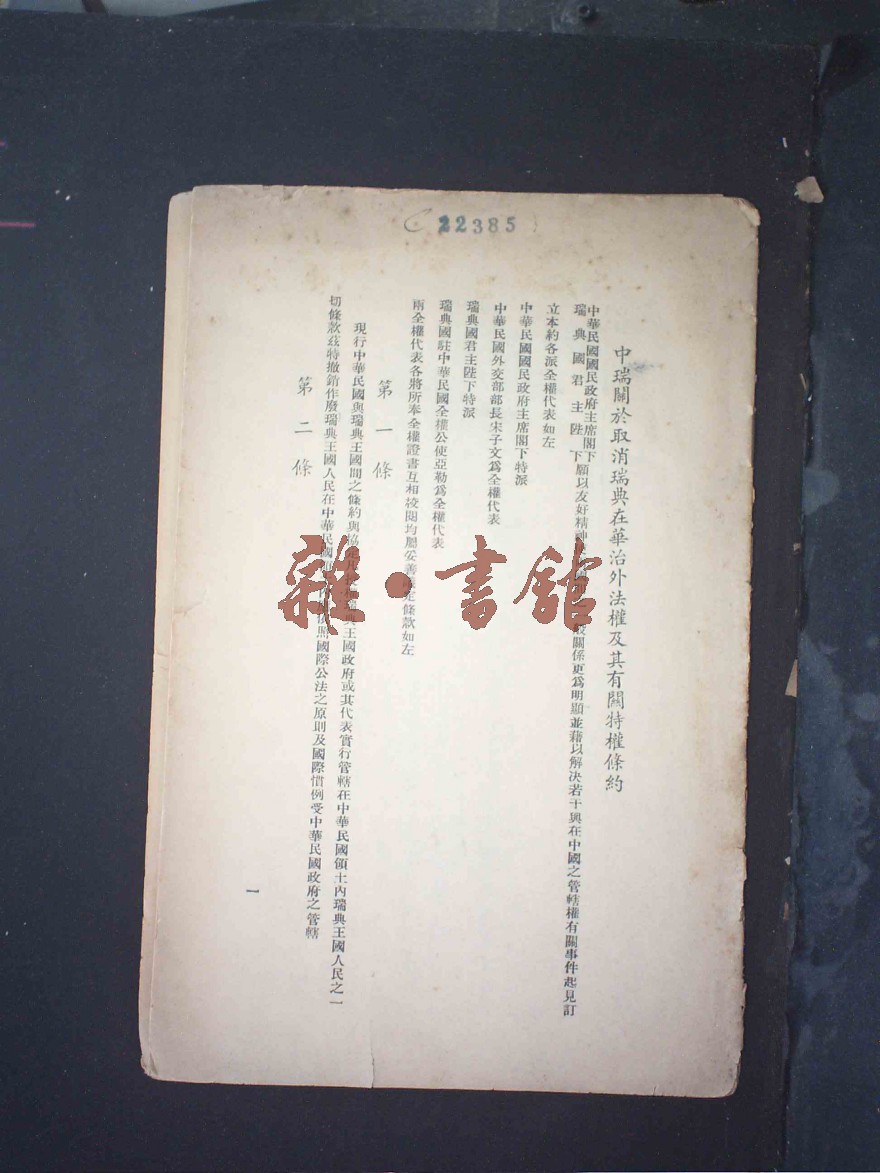 22385
中瑞關於取消瑞典在華治外法權及其有關特權條約
中華民國國民政府主席閣下
瑞典國君主陛下願以友好精神 關係更爲明顯並藉以解決若干與在中國之管轄權有關事件起見訂
立本約各派全權代表如左
中華民國國民政府主席閣下特派
中華民國外交部部長宋子文爲全權代表
瑞典國君主陛下特派
瑞典國駐中華民國全權公使亞勒爲全權代表
兩全權代表各將所奉全權證書互相校閱均屬妥善 定條款如左
第一條
現行中華民國與瑞典王國間之條約與協定 典王國政府或其代表實行管轄在中華民國領土內瑞典王國人民之一
切條款茲特撤銷作廢瑞典王國人民在中華民國領 依照國際公法之原則及國際慣例受中華民國政府之管轄
第二條
一
雜·書館